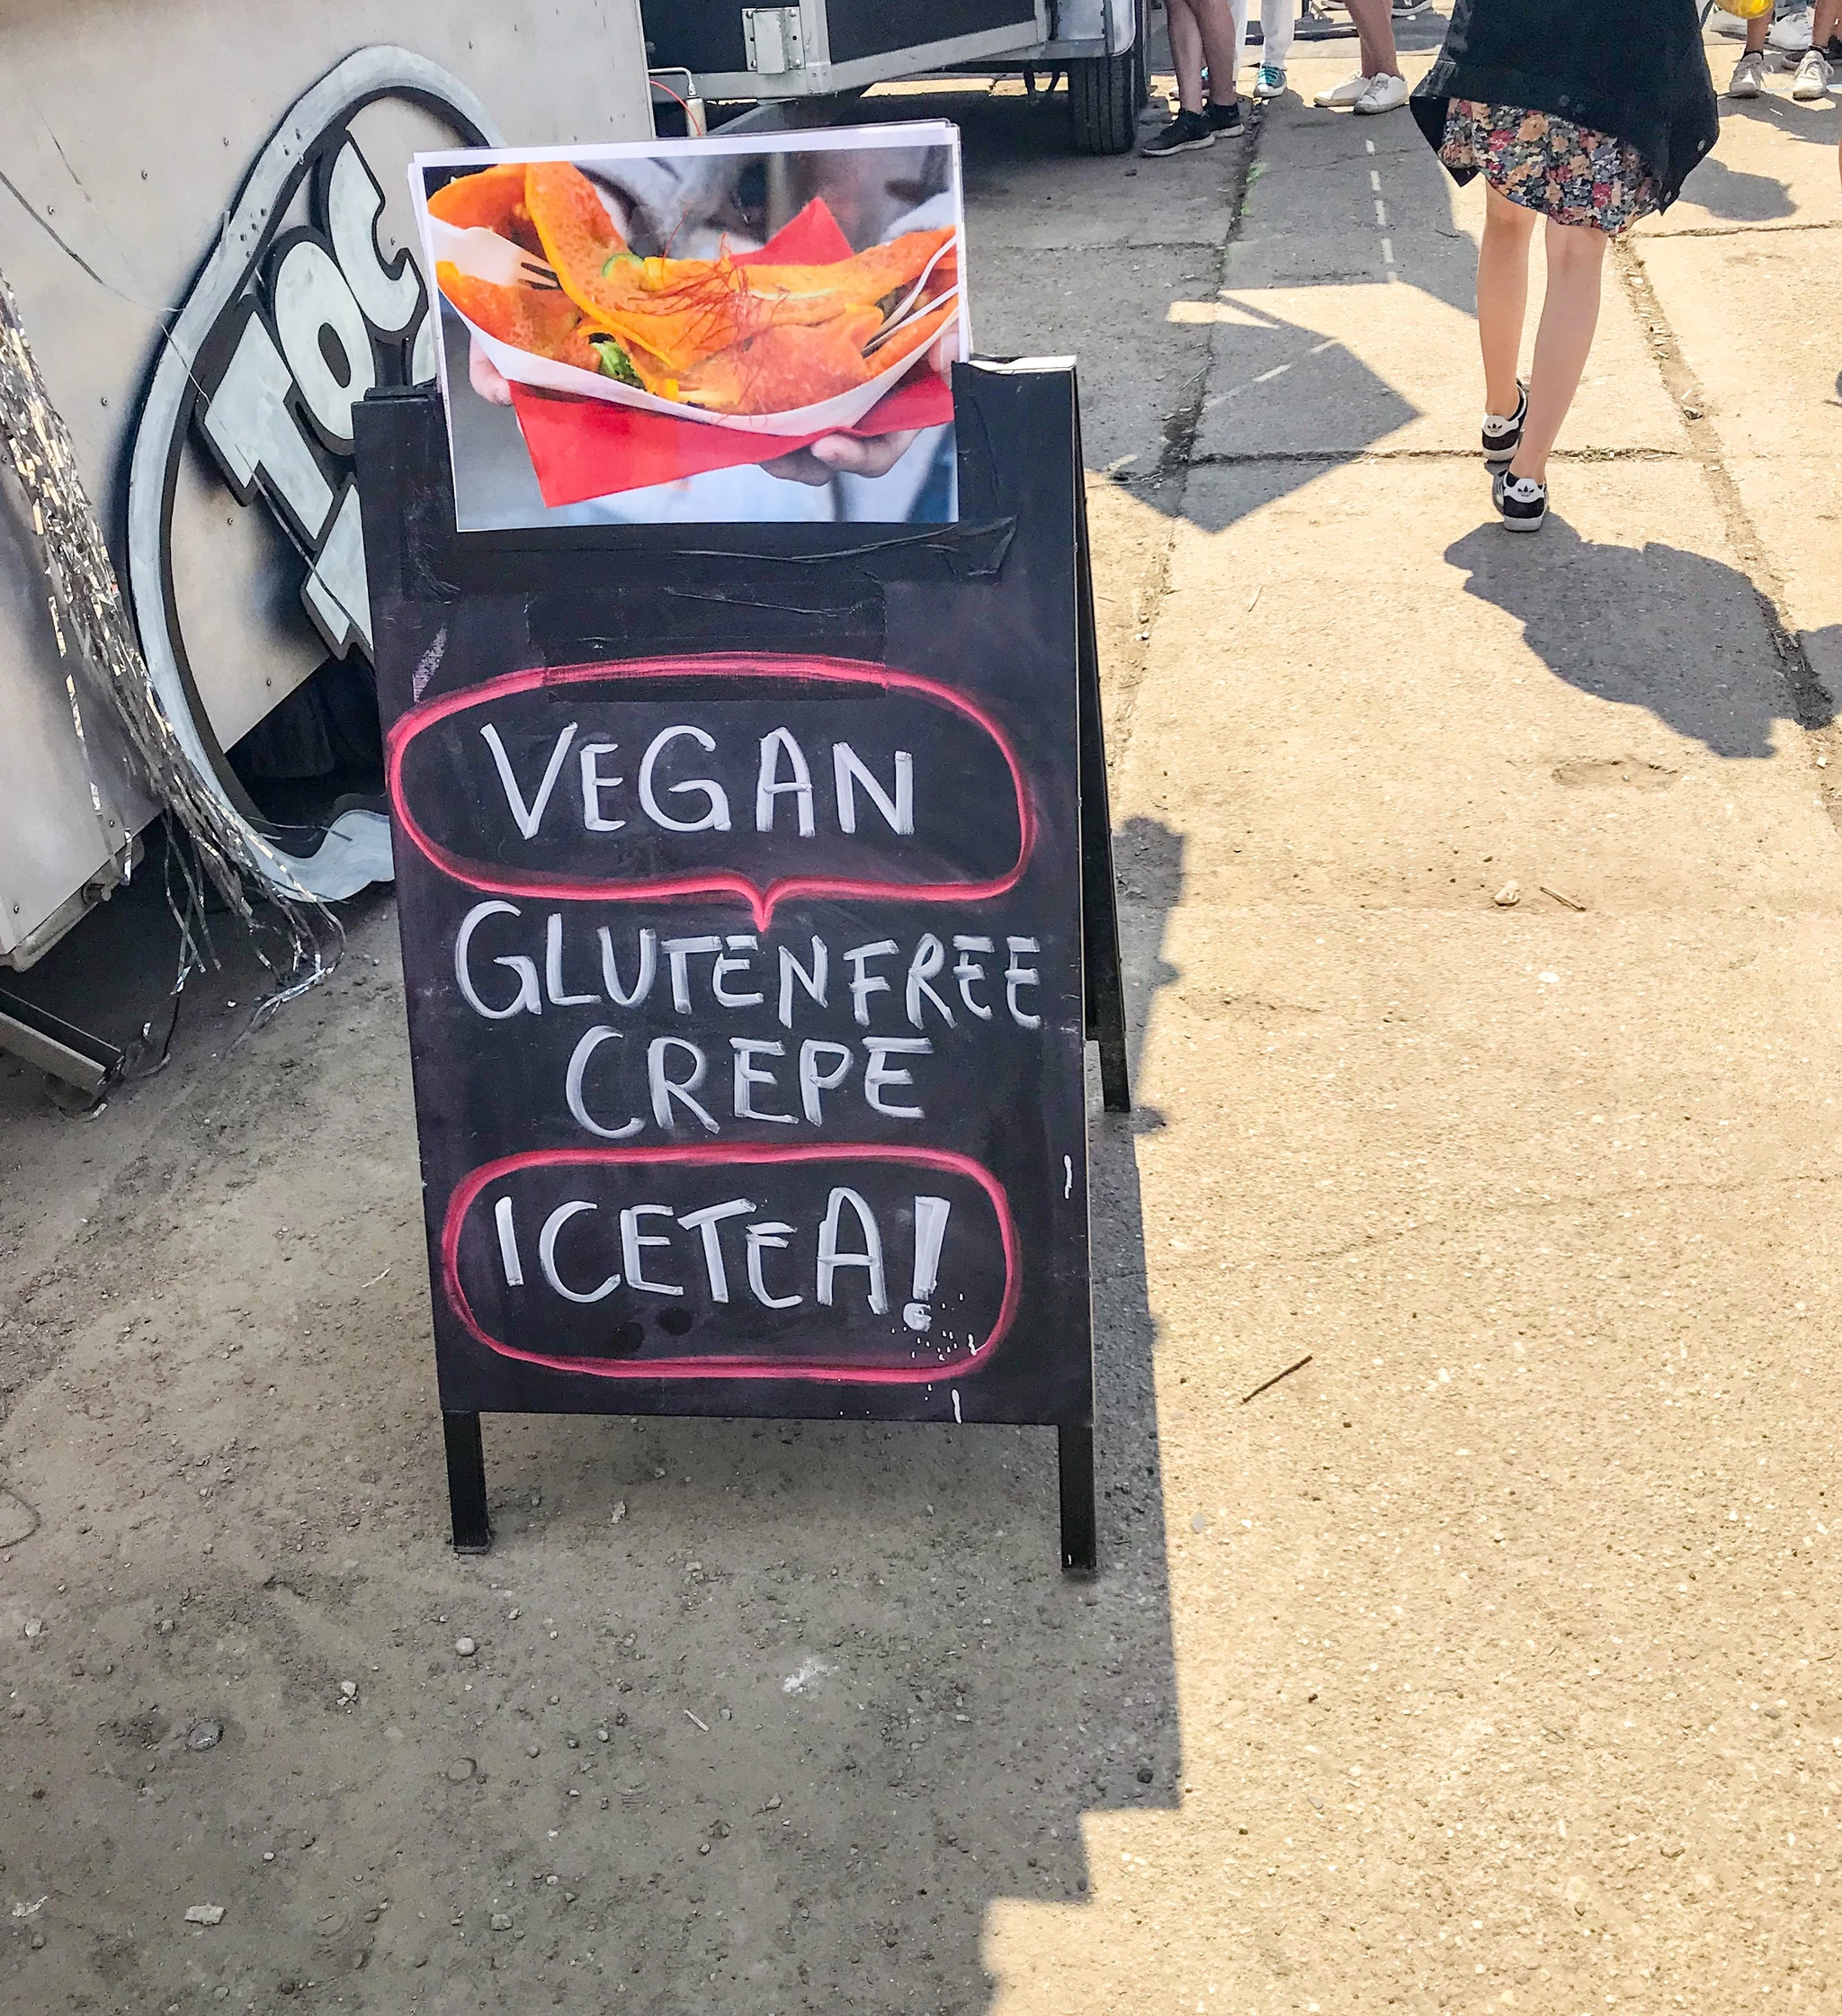 VEGAN
GLUTENFREE
CREPE
ICETEA!